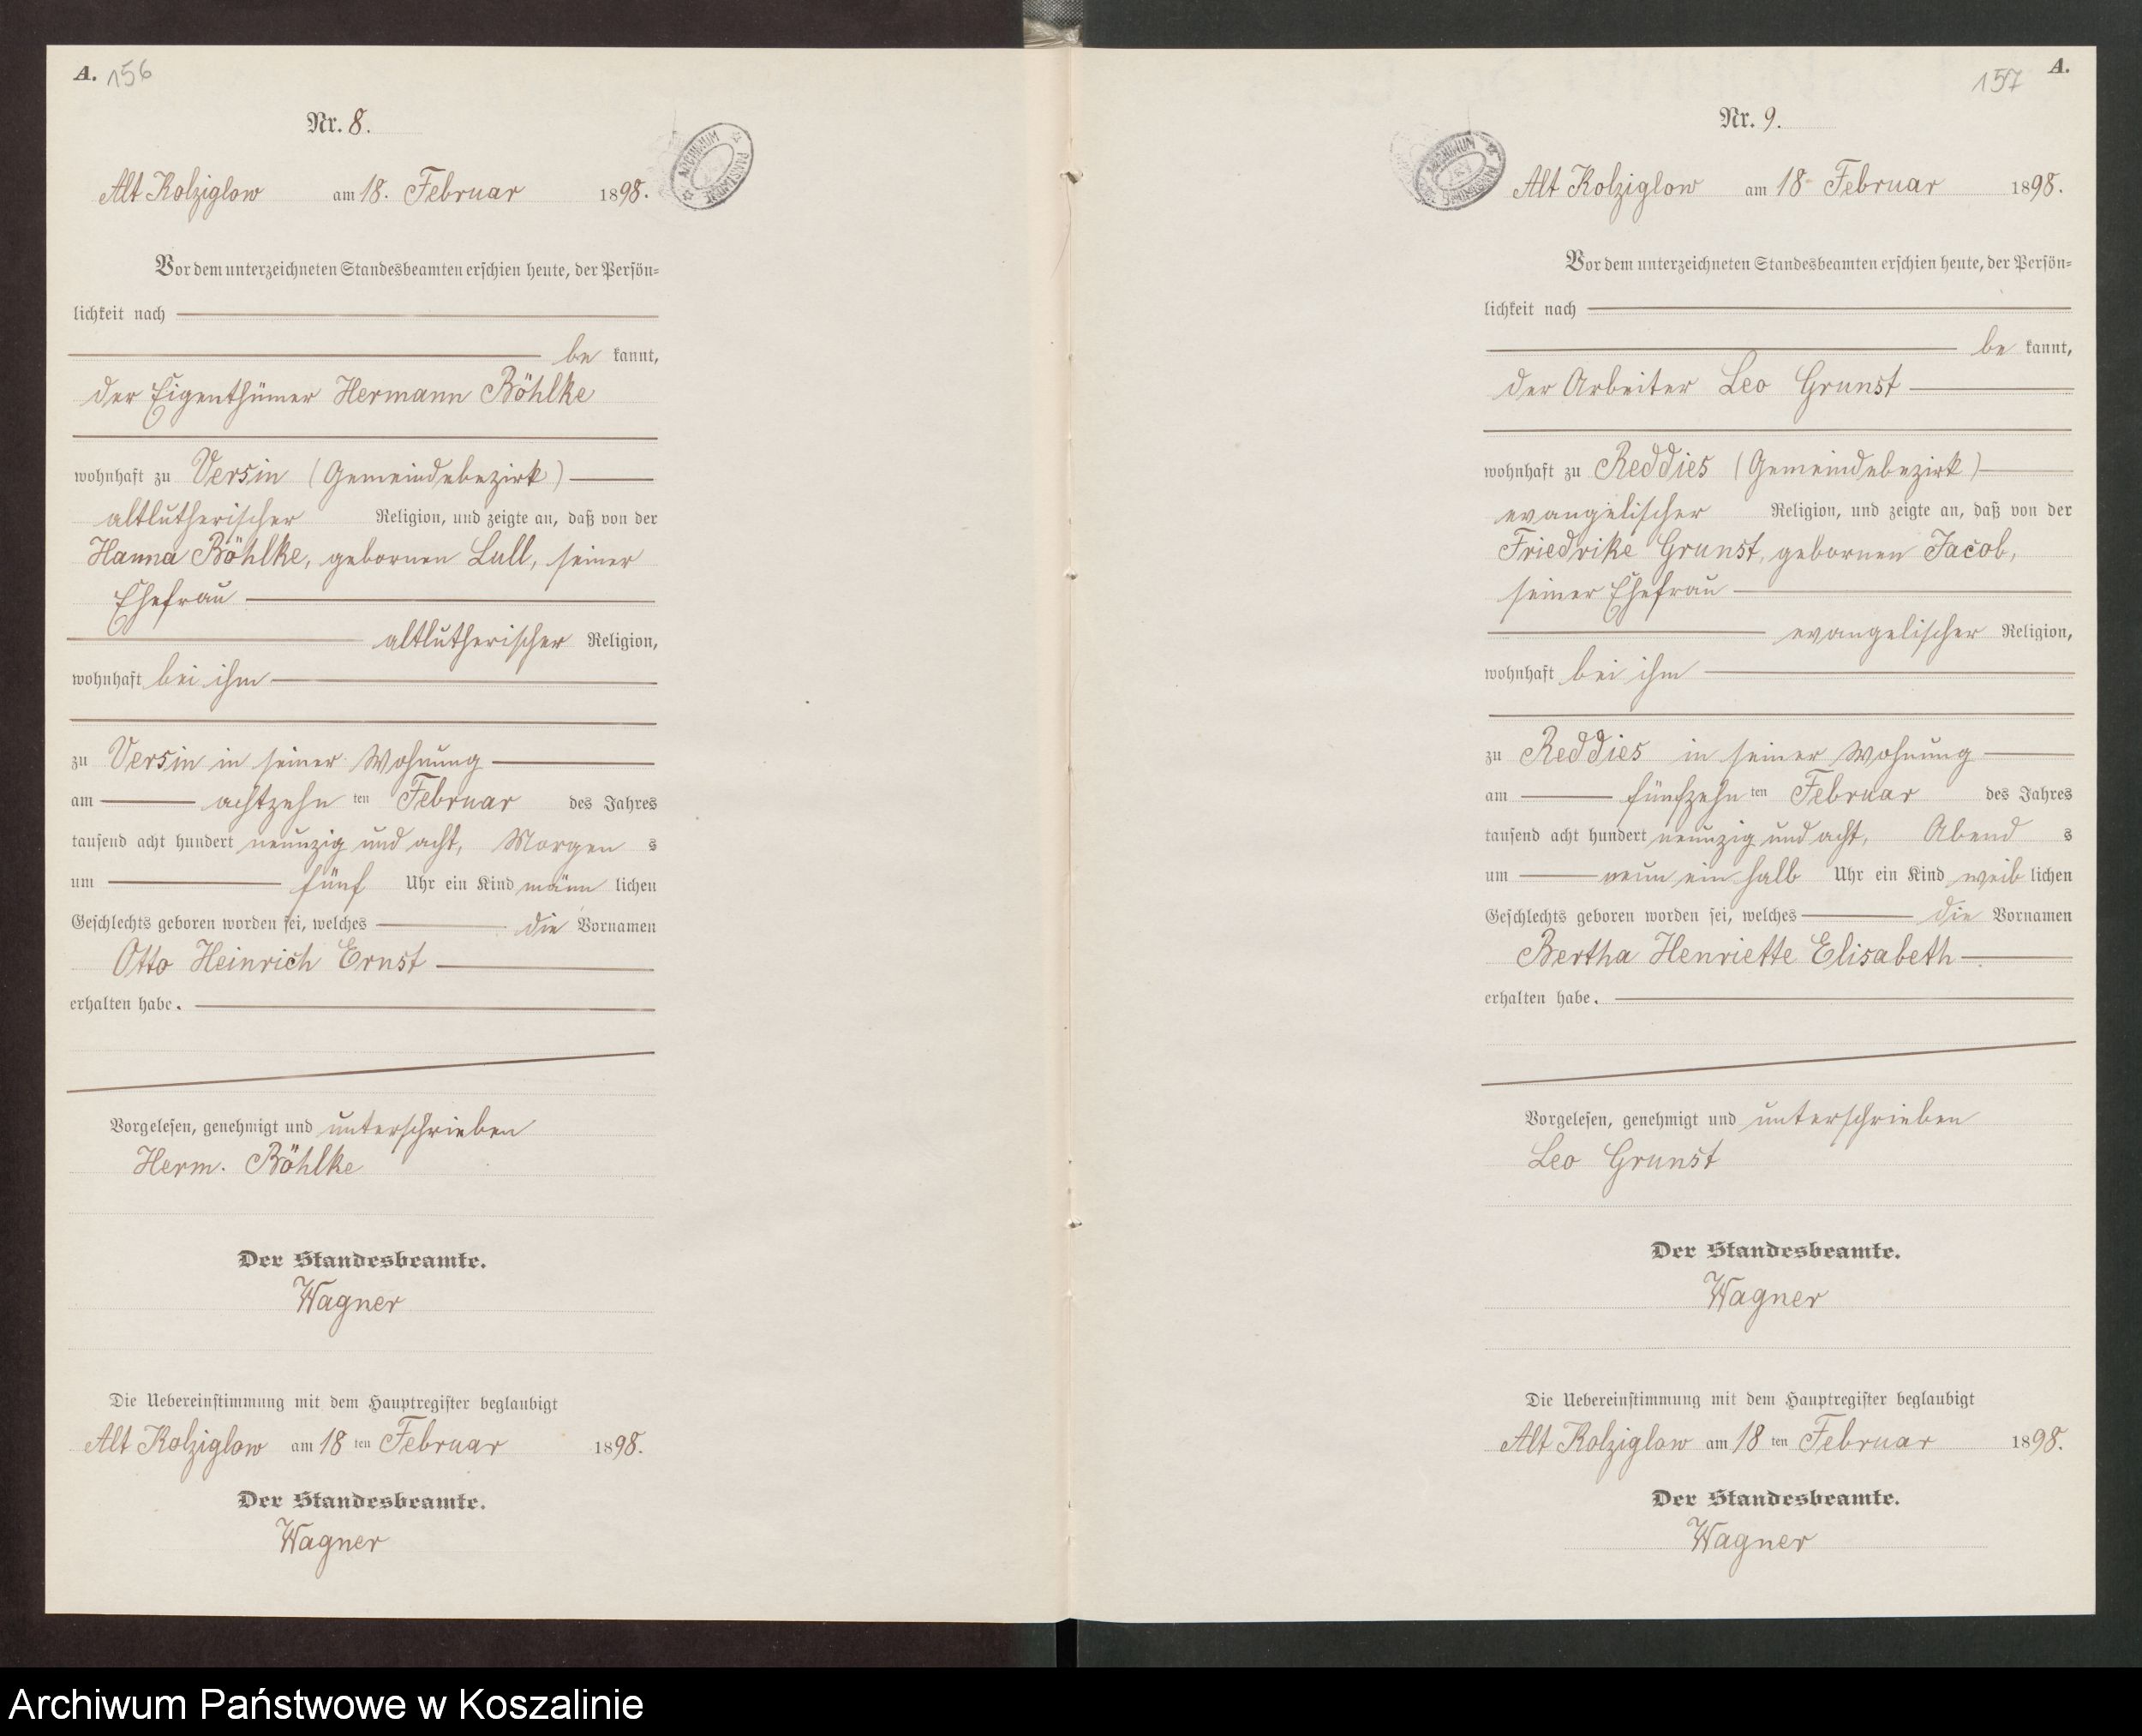 A. 156
Nr. 8.
Alt Kolziglow am 18. Februar 1898.
Vor dem unterzeichneten Standesbeamten erschien heute, der Persön=
lichkeit nach
be kannt,
der Eigenthümer Hermann Böhlke
wohnhaft zu Versin (Gemeindebezirk)
altlutherischer Religion, und zeigte an, daß von der
Hanna Böhlke, gebornen Lull, seiner
Ehefrau
altlutherischer Religion,
wohnhaft bei ihm
zu Versin in seiner Wohnung
am achtzehn ten Februar des Jahres
tausend acht hundert neunzig und acht, Morgen s
um fünf Uhr ein Kind männ lichen
Geschlechts geboren worden sei, welches die Vornamen
Otto Heinrich Ernst
erhalten habe.
Vorgelesen, genehmigt und unterschrieben
Herm. Böhlke
Der Standesbeamte.
Wagner
Die Uebereinstimmung mit dem Hauptregister beglaubigt
Alt Kolziglow am 18 ten Februar 1898.
Der Standesbeamte.
Wagner
ARCHIWUM PAŃSTWOWE
157 A.
Nr. 9.
Alt Kolziglow am 18 Februar 1898.
Vor dem unterzeichneten Standesbeamten erschien heute, der Persön=
lichkeit nach
be kannt,
der Arbeiter Leo Grunst
wohnhaft zu Reddies (Gemeindebezirk)
evangelischer Religion, und zeigte an, daß von der
Friedrike Grunst, gebornen Jacob,
seiner Ehefrau
evangelischer Religion,
wohnhaft bei ihm
zu Reddies in seiner Wohnung
am fünfzehn ten Februar des Jahres
tausend acht hundert neunzig und acht, Abend s
um neun ein halb Uhr ein Kind weib lichen
Geschlechts geboren worden sei, welches die Vornamen
Bertha Henriette Elisabeth
erhalten habe.
Vorgelesen, genehmigt und unterschrieben
Leo Grunst
Der Standesbeamte.
Wagner
Die Uebereinstimmung mit dem Hauptregister beglaubigt
Alt Kolziglow am 18 ten Februar 1898.
Der Standesbeamte.
Wagner
Archiwum Państwowe w Koszalinie